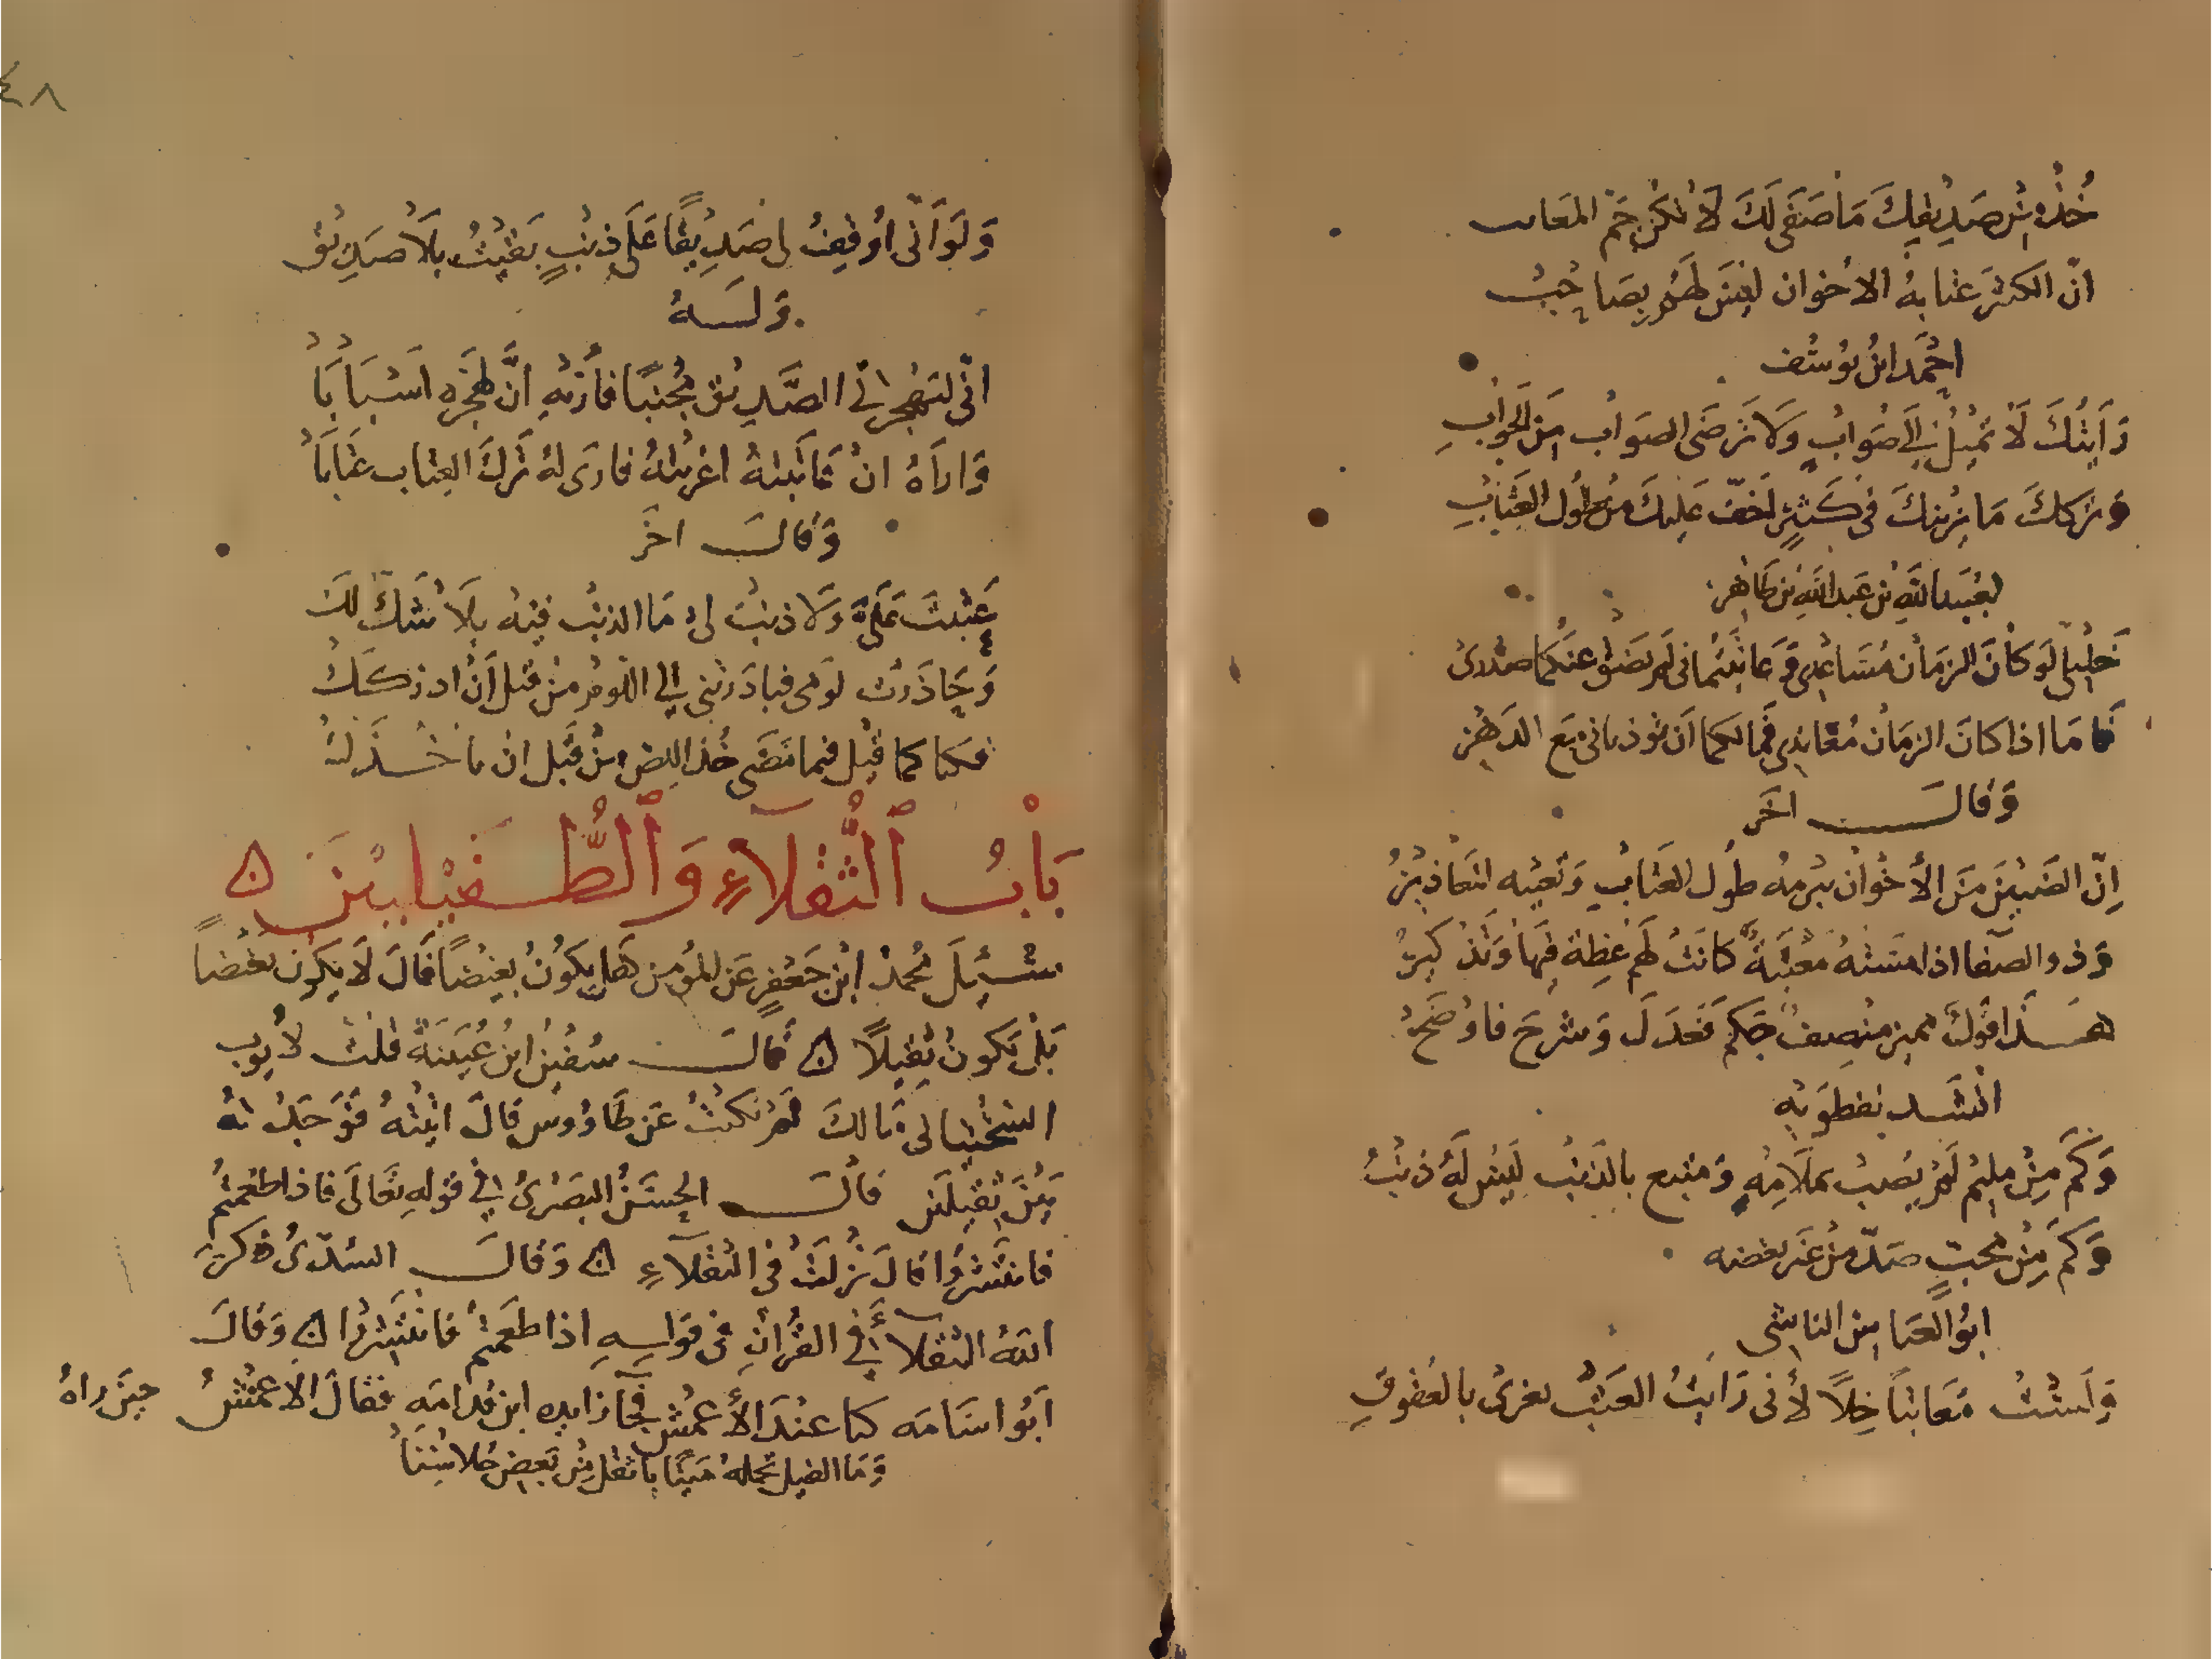 خُذْ مِنْ صَدِيقِكَ مَا صَفَى لَكَ لَا تَكُنْ جَمَّ المَعَايب
انّ الكثيرَ عتابهُ الاخوان ليسَ لهَم بِصَاحِبْ
احْمَد ابنُ يُوسُف
رَأَيْتُكَ لَا تَمِيْلُ إِلَى صَوَابٍ وَلَا تَرضَى الصَوَاب مِنَ الجَوَابِ
وَترككَ مَا يُريبكَ فى كَثيرٍ لَخفّ عَليكَ مِنْ طُولِ العِتَابِ
لعُبَيد اللهِ بن عَبد اللهِ بن طَاهر
خَلِيْلِيَّ لَو كَانَ الزمَان مُسَاعِدِى وَعَاتبْتُمَانى لَم يَضقْ عنكُمَا صَدْرِىْ
فَامَا اذا كانَ الزمَان مُعَاندِى فمَا لكما اَن تُوذيانى مَع الدَهْرِ
وَقالَــــ اخَر
إِنّ الضَنِيْنَ مِنَ الأَخْوَان يُبْرِمهُ طُول العِتَابِ وَتُعْيِيه المَعَاذِيْرُ
وَذو الصفَا اذا مَسَّتْهُ مَعْتِبَةٌ كانَتْ لَهُم عِظَة فِيْهَا وَتَذْكيرُ
هـَـذا قولُ مميز منصِفٌ حَكَم فَعَدَلَ وَشرحَ فاوْضَحْ
انْشَـد نفطوَيْهِ
وَكَمْ مِنْ مُلِيْمٍ لَمْ يُصَبْ بمَلَامَةٍ وَمتبع بالذَنْبِ لَيْسَ لَهُ ذَنْبُ
وَكَمْ مِنْ مُحبّ صَدّ مِنْ غَير بغضه
ابوُ العَباس الناشى
وَلَسْتُ مُعَاتباً خِلاً لأنى رَأَيْتُ العَتْبَ يغرى بالعُقوقِ
٤٨
وَلَوَ اَنّى اُوقفُ لى صَدِيْقًا عَلَى ذَنْبٍ بَقيْتُ بِلَا صَدِيْقِ
وَلَــهُ
انّى ليَهْجرنى الصَّدِيْق تجَنبًا فأُرِيْهِ انَّ لِهَجْرِهِ اَسْبَابَا
وَاراَهُ انْ عَاتَبتهُ اغريْتهُ فارَى لهُ تَركَ العِتَاب عِتَابَا
وَقالَـــ اخَر
عَتَبْتَ عَلَىَّ وَلَا ذنبَ لى مَا الذنْب فِيْهِ بِلَا شَكَّ لَكْ
وَحَاذَرْت لَومى فبادَرتنى الى اللّوم مِنْ قبل اَنْ ادرككْ
فكنا كما قيْل فيما مَضَى خُذ اللِصّ مِنْ قَبْل ان ياخُـذَكْ
بَابُ ٱلْثُّقَلَآءِ وَٱلْطُّـفَيْلِييْنَ ۝
سُـئِلَ مُحمد ابْن جَعْفَرٍ عَن المُؤمن هَل يَكُونُ بغِيْضًا قَالَ لَا يَكون بَغيْضاً
بَلْ يَكونُ ثَقِيلًا ۝ قَالَـــ سُفْيٰن ابنُ عُيَيْنَةَ قلْتُ لأَيوب
السَخْتيانى مَا لكَ لَم تكتُبْ عَن طَاوُوس قَالَ اتيْتُهُ فَوَجَدْتهُ
بَيْنَ ثَقِيْلَيْنِ قَالَـــ الحِسَنُ البَصْرىُّ فى قولهِ تَعَالَى فاذا طَعمْتُم
فانتَشرُوا قالَ نَزلَتْ فى الثُقَلَآءِ ۝ وَقالَـــ السُدّىُّ ذكرَ
اللهُ الثُقَلَآءَ فى القُرْاٰنِ فى قَوله اذا طَعمْتُمْ فانْتَشِرُوا ۝ وَقالَ
اَبُو اسَامَه كنا عِنْدَ الأَعْمش فجَآ زايده ابن قدامَه فقالَ الأَعْمشُ حِيْنَ رَاهُ
وَمَا الفيل تحملهُ مَيّتًا باثقلَ مِنْ بَعضِ جُلاسِنَا